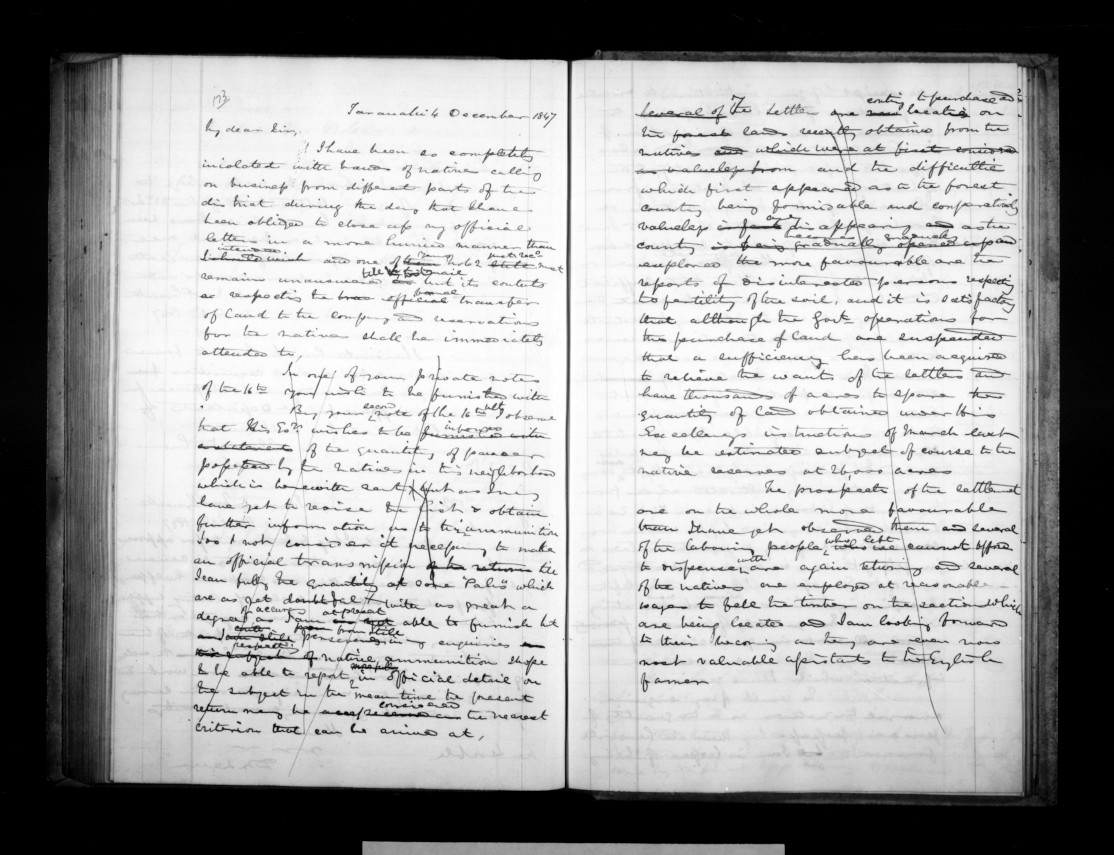 173
Taranaki 4 December 1847
My dear Sir,
I have been so completely
inviolated with bands of natives calling
on business from different parts of the
district during the day that I have
been obliged to close up my official
letters in a more hurried manner than
intended
I should wish and one of them No 2 must
remain unanswered but its contents
till next mail
as respects the formal official transfer
of land to the company and reservations
for the natives shall be immediately
attended to,
In one of your private notes
of the 16th you wish to be furnished with
By your second note of the 16th ult I observe
that His Exy wishes to be furnished with
informed
a statement of the quantity of powder
possessed by the natives in this neighborhood
which is herewith sent but as I may
have yet to revise the list & obtain
further information as to the ammunition
I do not consider it necessary to make
an official transmission of the return till
I can fully the quantity at some "Pahs" which
are as yet doubtful with as great a
of accuracy at present
degree as I am not able to furnish but
as I am still persevering in my enquiries on
respecting
this subject of native ammunition I hope
to be able to report in official detail, on
the subject in the mean time the present
considered
return may be accepted as the nearest
criterion that can be arrived at,
Several of the settlers are now locating on
going to purchase and
the forest land recently obtained from the
natives and which were at first considered
as valueless from and the difficulties
which first appeared as to the forest
country being formidable and comparatively
valueless is fast disappearing and as the
country is being gradually opened up and
explored the more favourable are the
reports of disinterested persons respecting
the fertility of the soil, and it is satisfactory
that although the Govt operations for
the purchase of land are suspended
that a sufficiency has been acquired
to relieve the wants of the settlers and
have thousands of acres to spare the
quantity of land obtained under His
Excellency's instructions of March last
may be estimated subject of course to the
native reserves at 26,000 acres
The prospects of the settlement
are on the whole more favourable
than I have yet observed them and several
of the labouring people, who left
who we cannot afford
to dispense with are again returning and several
of the natives are employed at reasonable
wages to fell the timber on the sections which
are being located and I am looking forward
to their becoming as they are even now
most valuable assistants to the English
farmer